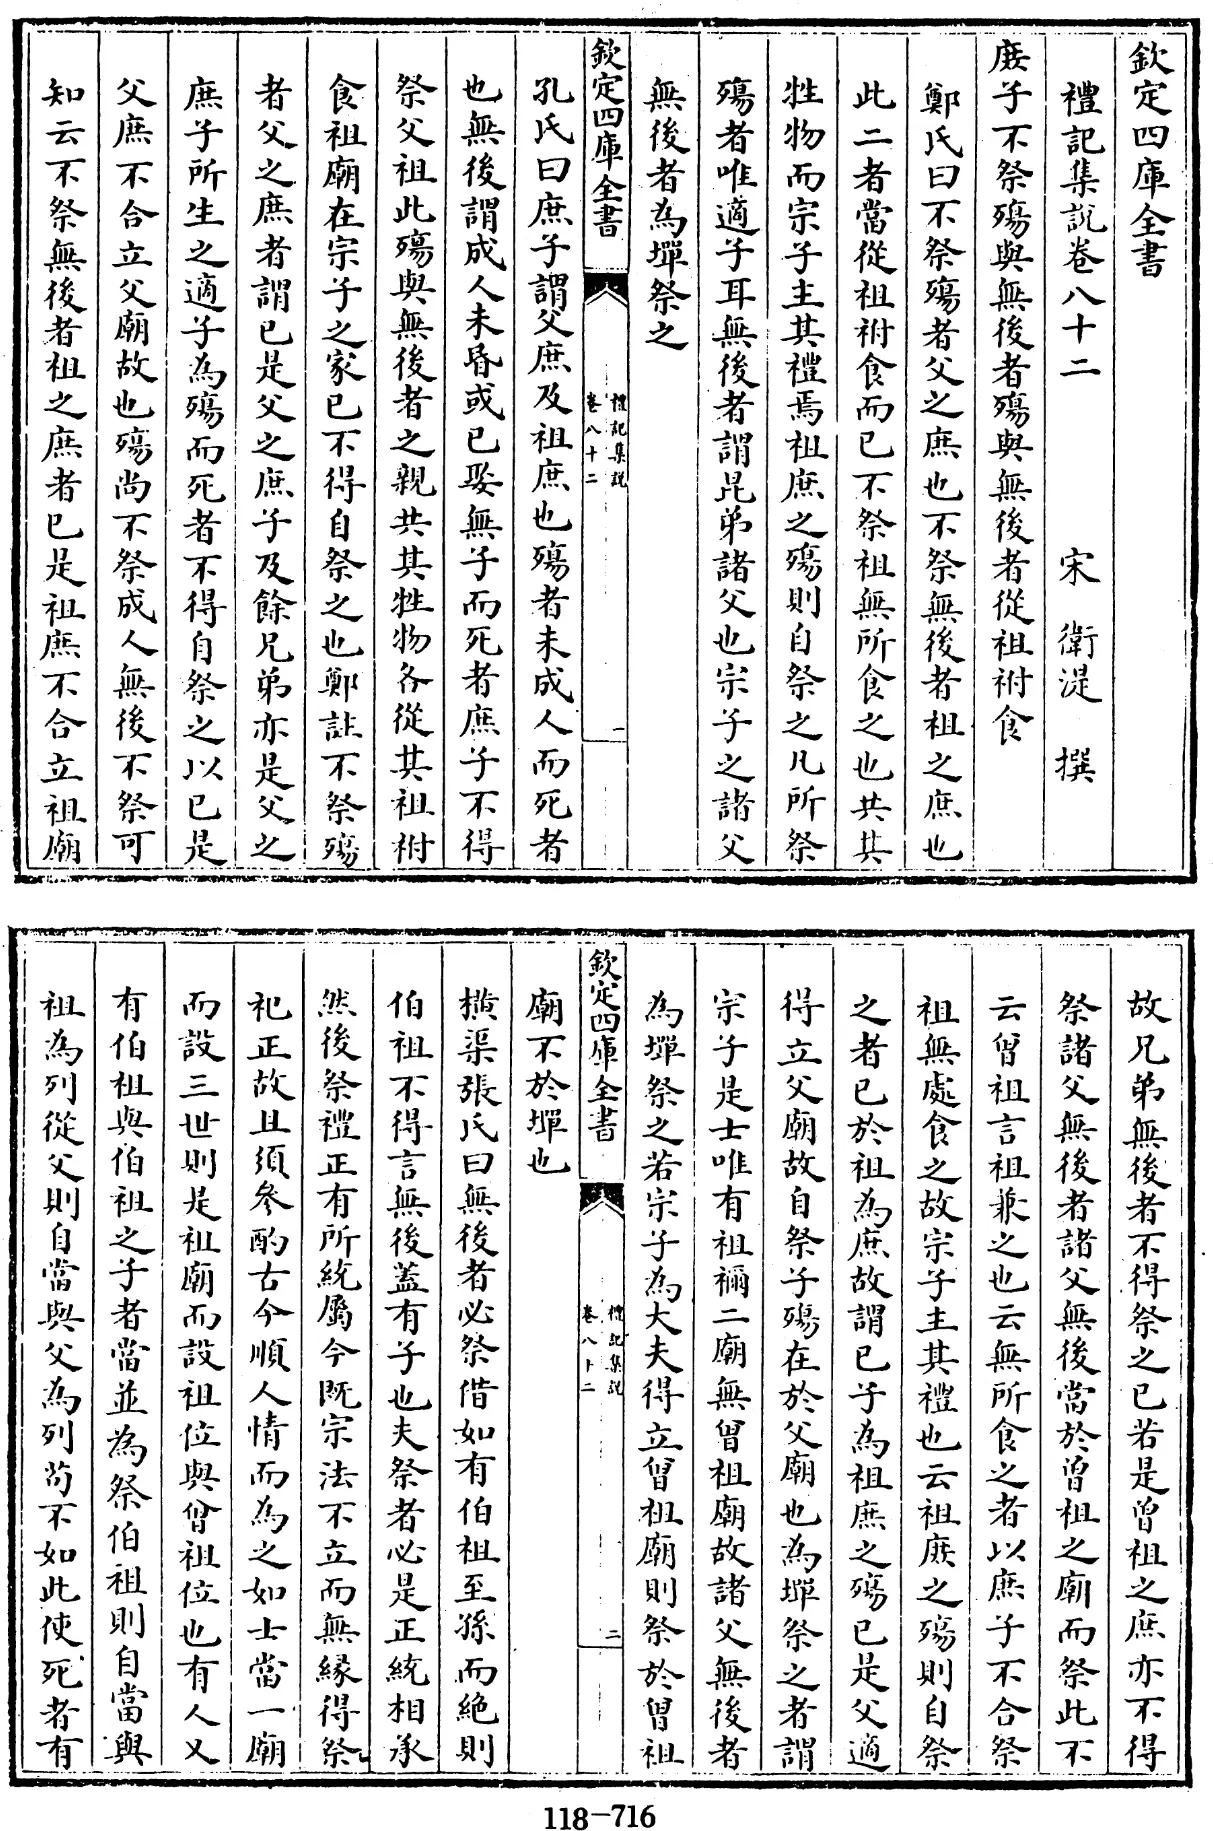 欽定四庫全書
禮記集說卷八十二
宋 衛湜 撰
庶子不祭殤與無後者殤與無後者從祖祔食
鄭氏曰不祭殤者父之庶也不祭無後者祖之庶也
此二者當從祖祔食而已不祭祖無所食之也共其
牲物而宗子主其禮焉祖庶之殤則自祭之凡所祭
殤者唯適子耳無後者謂昆弟諸父也宗子之諸父
無後者為墠祭之
欽定四庫全書
禮記集說
卷八十二
一
孔氏曰庶子謂父庶及祖庶也殤者未成人而死者
也無後謂成人未昏或已娶無子而死者庶子不得
祭父祖此殤與無後者之親共其牲物各從其祖祔
食祖廟在宗子之家已不得自祭之也鄭註不祭殤
者父之庶者謂已是父之庶子及餘兄弟亦是父之
庶子所生之適子為殤而死者不得自祭之以已是
父庶不合立父廟故也殤尚不祭成人無後不祭可
知云不祭無後者祖之庶者已是祖庶不合立祖廟
故兄弟無後者不得祭之已若是曾祖之庶亦不得
祭諸父無後者諸父無後當於曾祖之廟而祭此不
云曾祖言祖兼之也云無所食之者以庶子不合祭
祖無處食之故宗子主其禮也云祖庶之殤則自祭
之者已於祖為庶故謂已子為祖庶之殤已是父適
得立父廟故自祭子殤在於父廟也為墠祭之者謂
宗子是士唯有祖禰二廟無曾祖廟故諸父無後者
為墠祭之若宗子為大夫得立曾祖廟則祭於曾祖
欽定四庫全書
禮記集說
卷八十二
二
廟不於墠也
橫渠張氏曰無後者必祭借如有伯祖至孫而絶則
伯祖不得言無後蓋有子也夫祭者必是正統相承
然後祭禮正有所統屬今既宗法不立而無緣得祭
祀正故且須參酌古今順人情而為之如士當一廟
而設三世則是祖廟而設祖位與曾祖位也有人又
有伯祖與伯祖之子者當並為祭伯祖則自當與
祖為列從父則自當與父為列苟不如此使死者有
118-716